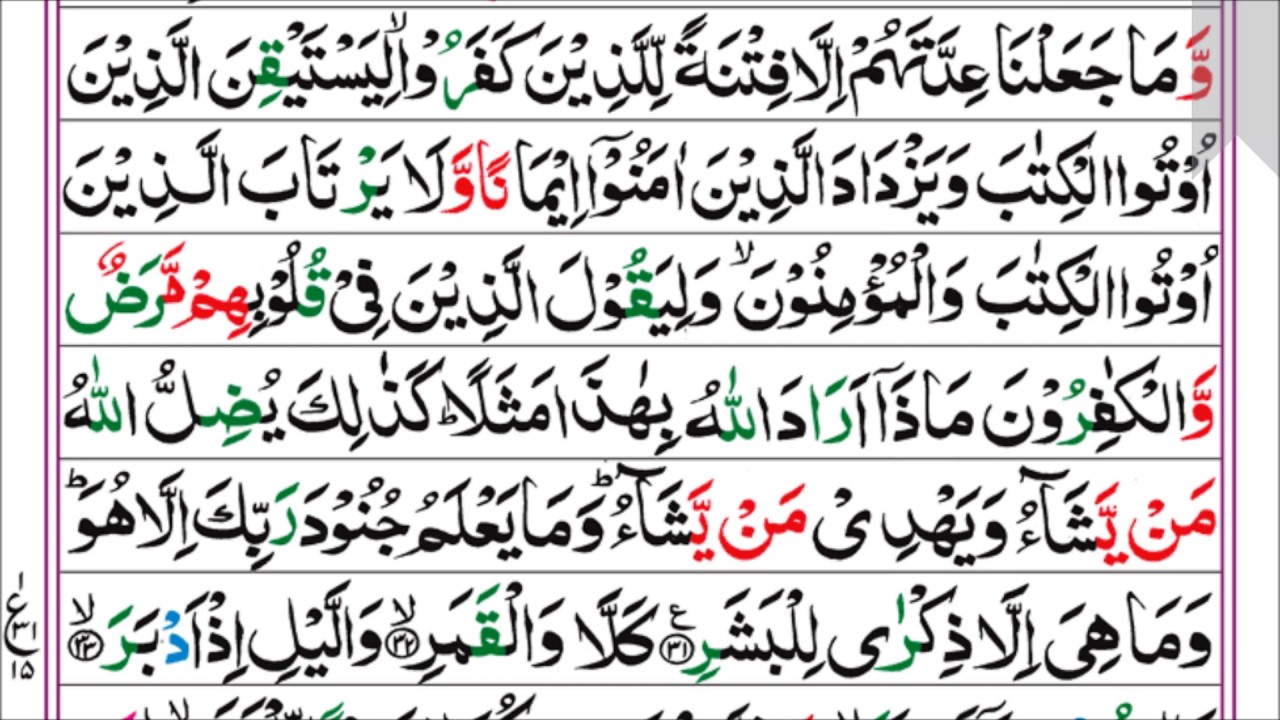 وَّمَا جَعَلْنَا عِدَّتَهُمْ اِلَّا فِتْنَةً لِّلَّذِيْنَ كَفَرُوْا ۙ لِيَسْتَيْقِنَ الَّذِيْنَ
اُوْتُوا الْكِتٰبَ وَيَزْدَادَ الَّذِيْنَ اٰمَنُوْٓا اِيْمَانًا وَّلَا يَرْتَابَ الَّذِيْنَ
اُوْتُوا الْكِتٰبَ وَالْمُؤْمِنُوْنَ ۙ وَلِيَقُوْلَ الَّذِيْنَ فِيْ قُلُوْبِهِمْ مَّرَضٌ
وَّالْكٰفِرُوْنَ مَاذَآ اَرَادَ اللّٰهُ بِهٰذَا مَثَلًا ؕ كَذٰلِكَ يُضِلُّ اللّٰهُ
مَنْ يَّشَآءُ وَيَهْدِيْ مَنْ يَّشَآءُ ؕ وَمَا يَعْلَمُ جُنُوْدَ رَبِّكَ اِلَّا هُوَ ؕ
وَمَا هِيَ اِلَّا ذِكْرٰى لِلْبَشَرِ ﴿۳۱﴾ ع كَلَّا وَالْقَمَرِ ﴿۳۲﴾ ۙ وَالَّيْلِ اِذْ اَدْبَرَ ﴿۳۳﴾ ۙ
۱
ع
۳۱
۱۵